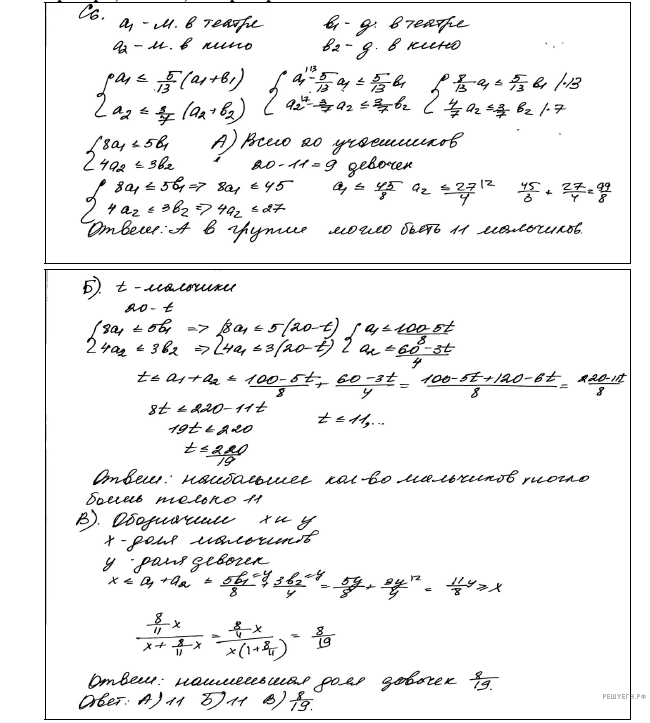 С6.
a₁ - м. в театре      в₁ - д. в театре
a₂ - м. в кино      в₂ - д. в кино
{a₁ ≤ 5/13 (a₁+в₁)   {a₁^{/13} - 5/13 a₁ ≤ 5/13 в₁   {8/13 a₁ ≤ 5/13 в₁ /·13
{a₂ ≤ 3/7 (a₂+в₂)   {a₂^{/7} - 3/7 a₂ ≤ 3/7 в₂   {4/7 a₂ ≤ 3/7 в₂ /·7
{8a₁ ≤ 5в₁   А) Всего 20 участников
{4a₂ ≤ 3в₂   20-11=9 девочек
{8a₁ ≤ 5в₁ => 8a₁ ≤ 45   a₁ ≤ 45/8   a₂ ≤ 27/4^{/2}   45/8 + 27/4 = 99/8
{4a₂ ≤ 3в₂ => 4a₂ ≤ 27
Ответ: А в группе могло быть 11 мальчиков.
Б). t - мальчики
20 - t
{8a₁ ≤ 5в₁ => {8a₁ ≤ 5(20-t)   {a₁ ≤ 100-5t/8
{4a₂ ≤ 3в₂ => {4a₁ ≤ 3(20-t)   {a₂ ≤ 60-3t/4
t ≤ a₁+a₂ ≤ 100-5t/8 + 60-3t/4 = 100-5t+120-6t/8 = 220-11t/8
8t ≤ 220-11t
19t ≤ 220      t ≤ 11,...
t ≤ 220/19
Ответ: наибольшее кол-во мальчиков могло
быть только 11
В). Обозначим x и y
x - доля мальчиков
y - доля девочек
x ≤ a₁+a₂ ≤ 5в₁=y/8 + 3в₂=y/4 = 5y/8 + 3y/4^{/2} = 11/8 y ≥ x
8/11 x / x + 8/11 x = 8/11 x / x(1+8/11) = 8/19
Ответ: наименьшая доля девочек 8/19.
Ответ: А) 11 Б) 11 В) 8/19.
РЕШУЕГЭ.РФ